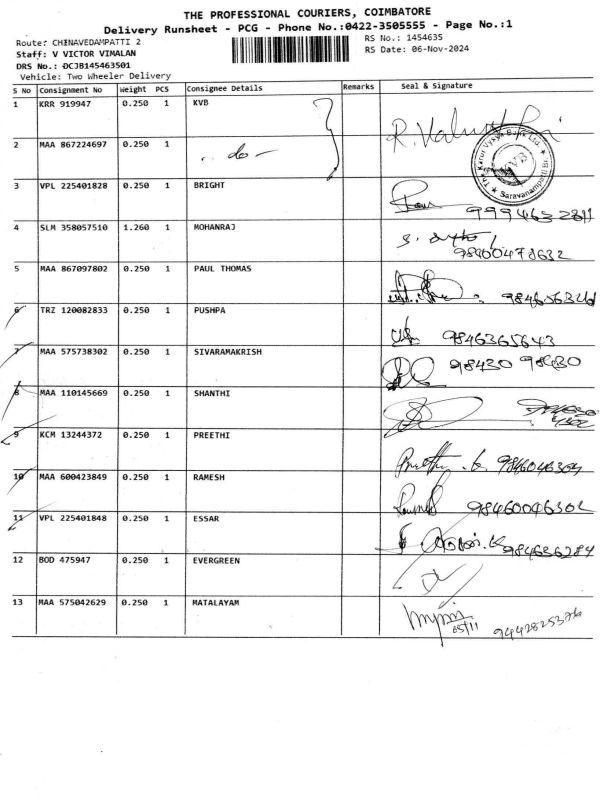 THE PROFESSIONAL COURIERS, COIMBATORE
Delivery Runsheet - PCG - Phone No.:0422-3505555 - Page No.:1
Route: CHINAVEDAMPATTI 2 RS No.: 1454635
Staff: V VICTOR VIMALAN RS Date: 06-Nov-2024
DRS No.: DCJB145463501
Vehicle: Two Wheeler Delivery
S No Consignment No Weight PCS Consignee Details Remarks Seal & Signature
1 KRR 919947 0.250 1 KVB
2 MAA 867224697 0.250 1 - do -
The Karur Vysya Bank Ltd. KVB Saravanampatti Br.
3 VPL 225401828 0.250 1 BRIGHT 9994632811
4 SLM 358057510 1.260 1 MOHANRAJ
5 MAA 867097802 0.250 1 PAUL THOMAS
6 TRZ 120082833 0.250 1 PUSHPA 9846365643
7 MAA 575738302 0.250 1 SIVARAMAKRISH 98430 98430
8 MAA 110145669 0.250 1 SHANTHI
9 KCM 13244372 0.250 1 PREETHI Preethy
10 MAA 600423849 0.250 1 RAMESH
11 VPL 225401848 0.250 1 ESSAR
12 BOD 475947 0.250 1 EVERGREEN
13 MAA 575042629 0.250 1 MATALAYAM